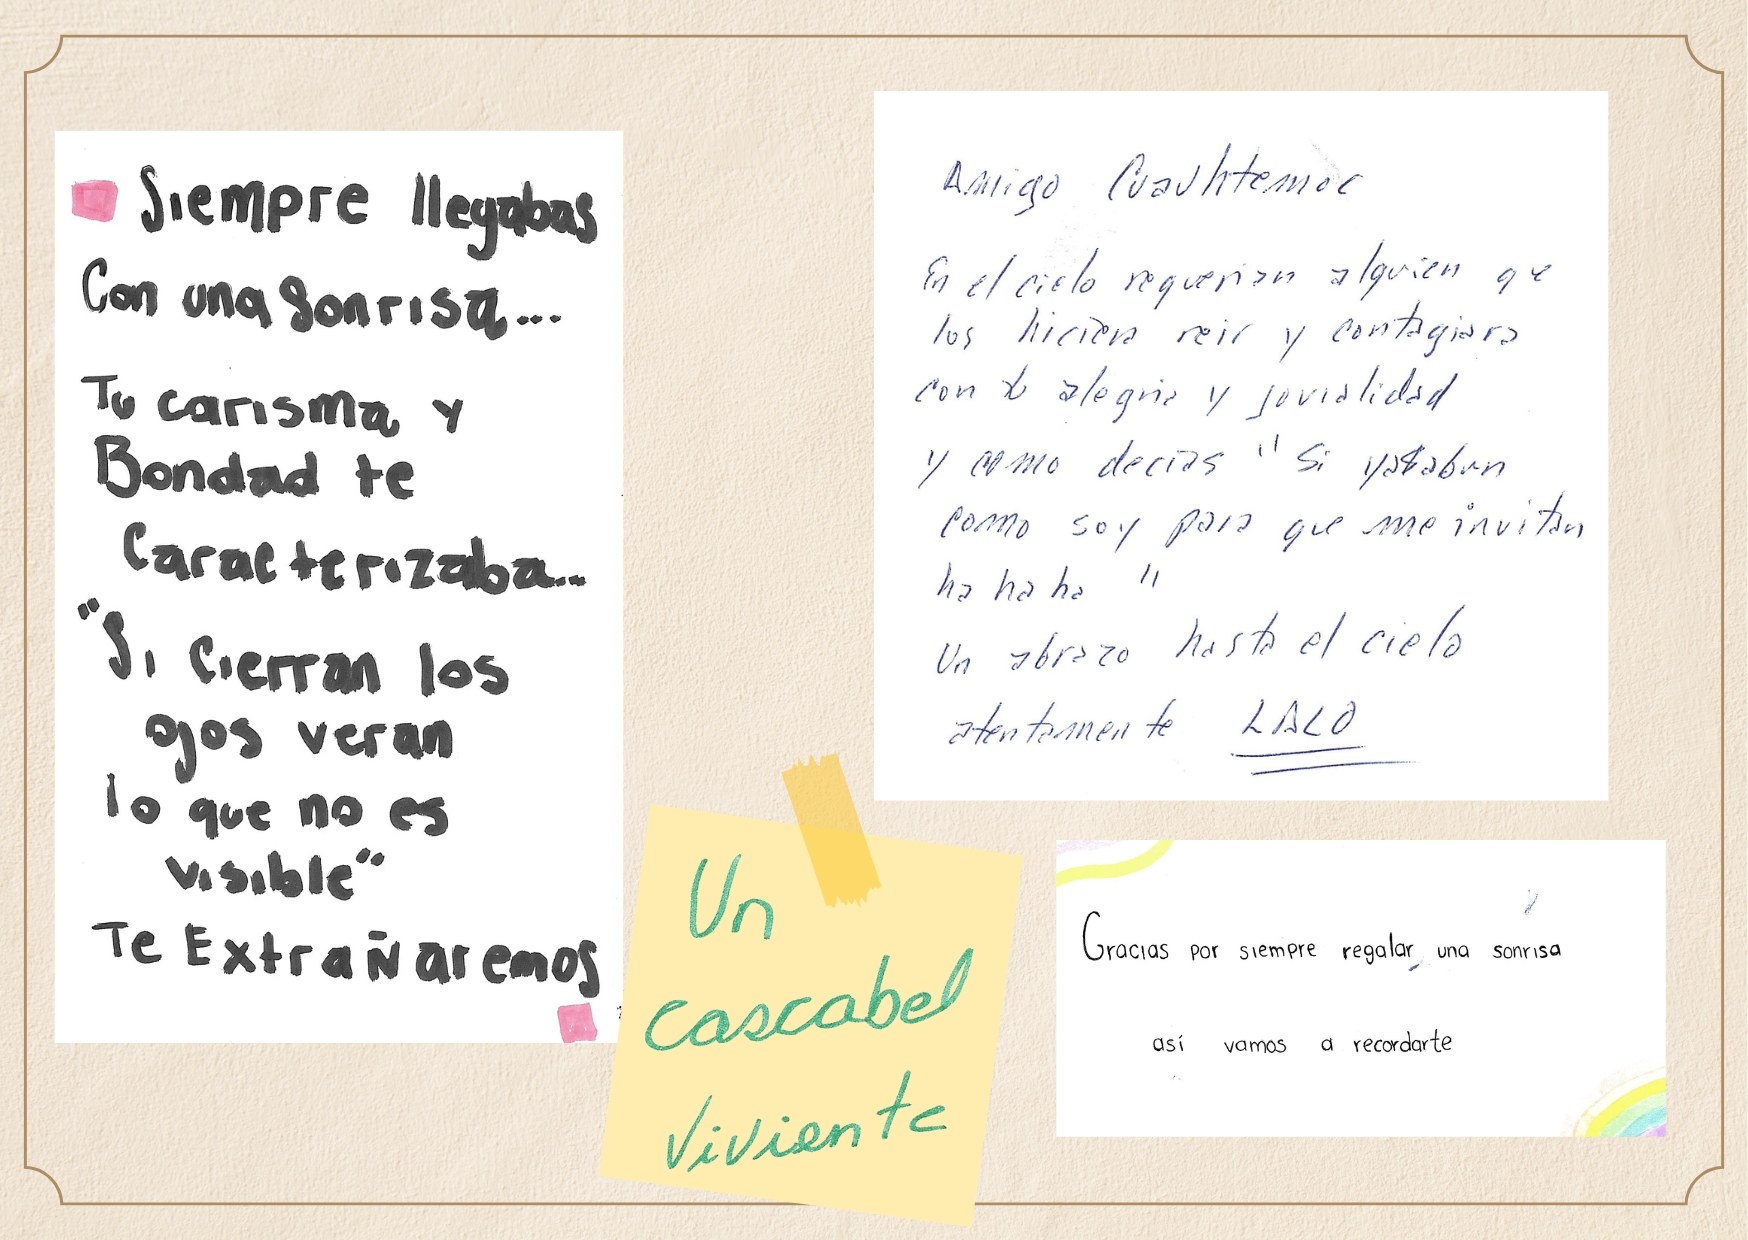 Siempre llegabas
Con una sonrisa...
Tu carisma y
Bondad te
Caracterizaba...
"Si cierran los
ojos veran
lo que no es
visible"
Te ExtraÑaremos
Amigo Cuauhtemoc
En el cielo requerian alguien que
los hiciera reir y contagiara
con tu alegria y jovialidad
y como decias "Si ya saben
como soy para que me invitan
ha ha ha"
Un abrazo hasta el cielo
atentamente LALO
Un
cascabel
viviente
Gracias por siempre regalar una sonrisa
así vamos a recordarte